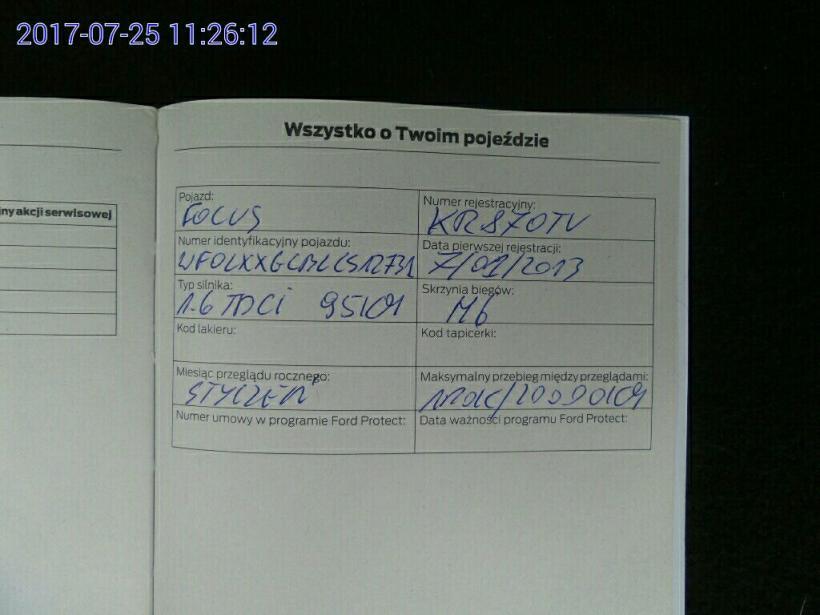 2017-07-25 11:26:12
Wszystko o Twoim pojeździe
ny akcji serwisowej
Pojazd:
FOCUS
Numer rejestracyjny:
KR870TV
Numer identyfikacyjny pojazdu:
Data pierwszej rejestracji:
7/01/2013
Typ silnika:
1.6 TDCi
Skrzynia biegów:
M6
Kod lakieru:
Kod tapicerki:
Miesiąc przeglądu rocznego:
STYCZEŃ
Maksymalny przebieg między przeglądami:
Numer umowy w programie Ford Protect:
Data ważności programu Ford Protect: